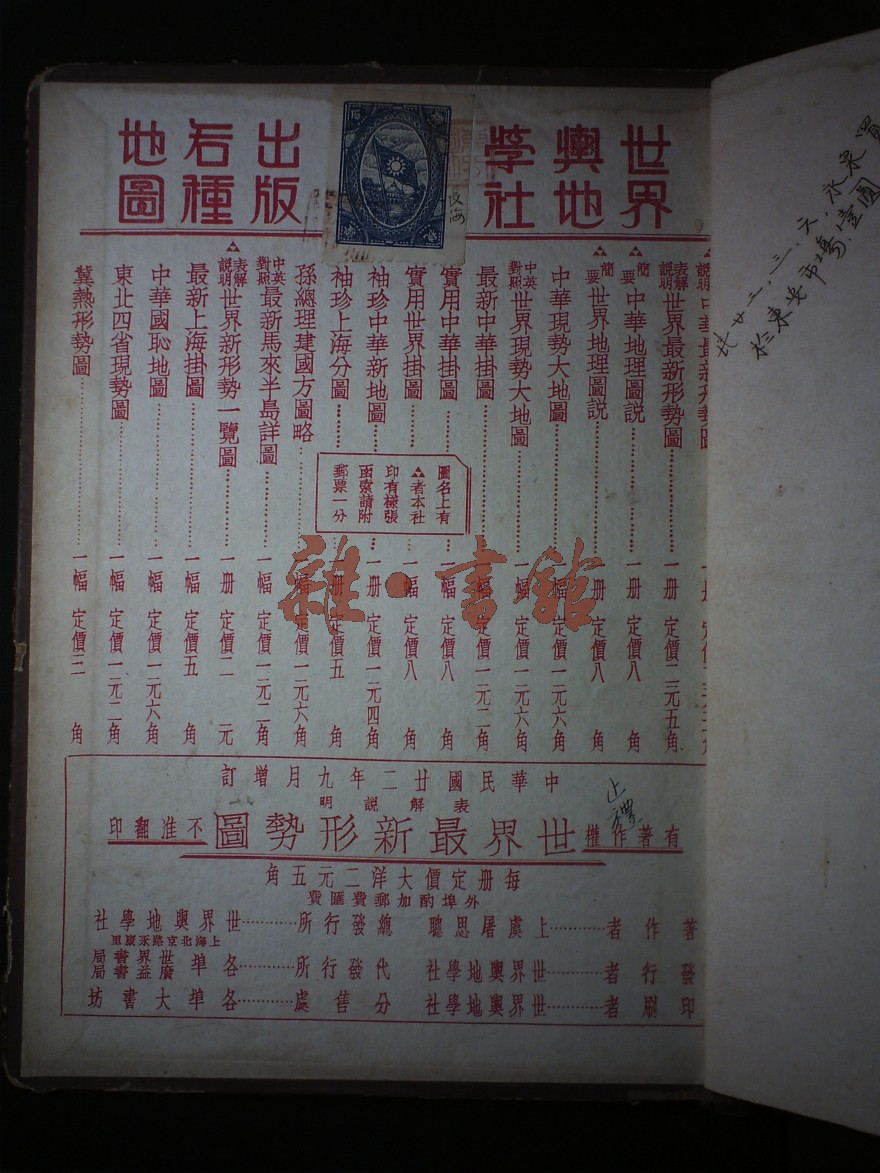 世界輿地學社出版右種地圖
表解說明中華最新形勢圖
一册 定價
表解說明世界最新形勢圖
一册 定價二元五角
簡要中華地理圖說
一册 定價八角
簡要世界地理圖說
一册 定價八角
中華現勢大地圖
一幅 定價一元六角
中英對照世界現勢大地圖
一幅 定價一元六角
最新中華掛圖
一幅 定價一元二角
實用中華掛圖
一幅 定價八角
實用世界掛圖
一幅 定價八角
袖珍中華新地圖
一册 定價一元四角
袖珍上海分圖
一册 定價五角
孫總理建國方圖略
一幅 定價一元六角
中英對照最新馬來半島詳圖
一幅 定價一元二角
表解說明世界新形勢一覽圖
一册 定價二元
最新上海掛圖
一幅 定價五角
中華國恥地圖
一幅 定價一元六角
東北四省現勢圖
一幅 定價一元二角
冀熱形勢圖
一幅 定價三角
圖名上有
者本社
印有樣張
函索請附
郵票一分
中華民國廿二年九月增訂
表解說明
有著作權 世界最新形勢圖 不准翻印
每册定價大洋二元五角
外埠酌加郵費匯費
著作者 上虞屠思聰 總發行所 世界輿地學社
上海北京路永慶里
發行者 世界輿地學社 代發行所 各埠 世界書局 廣益書局
印刷者 世界輿地學社 分售處 各埠大書坊
雜·書館